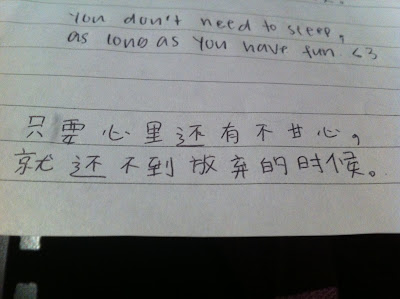 You don't need to sleep,
as long as you have fun <3
只要心里还有不甘心，
就还不到放弃的时候。